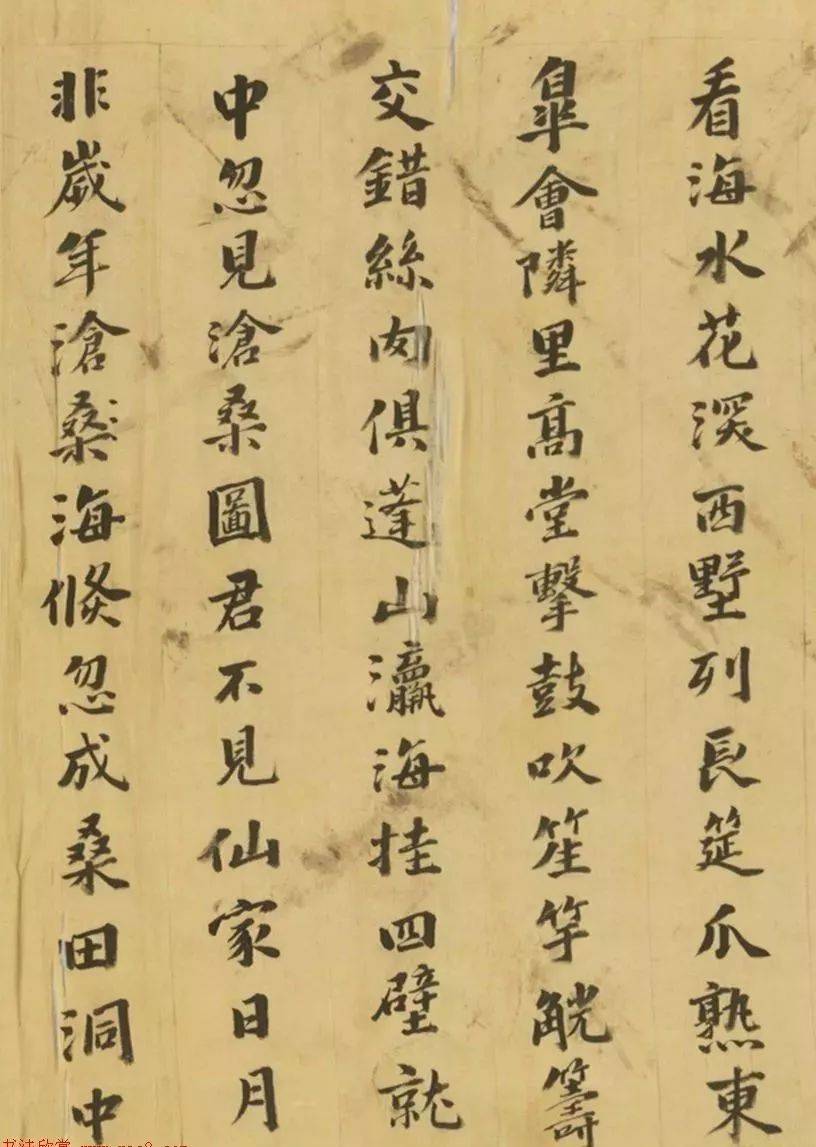 看海水花深西墅列長筵瓜熟東
皐會隣里髙堂擊鼓吹笙竽觥籌
交錯絲肉俱蓬山瀛海挂四壁就
中忽見滄桑圖君不見仙家日月
非歲年滄桑海倐忽成桑田洞中